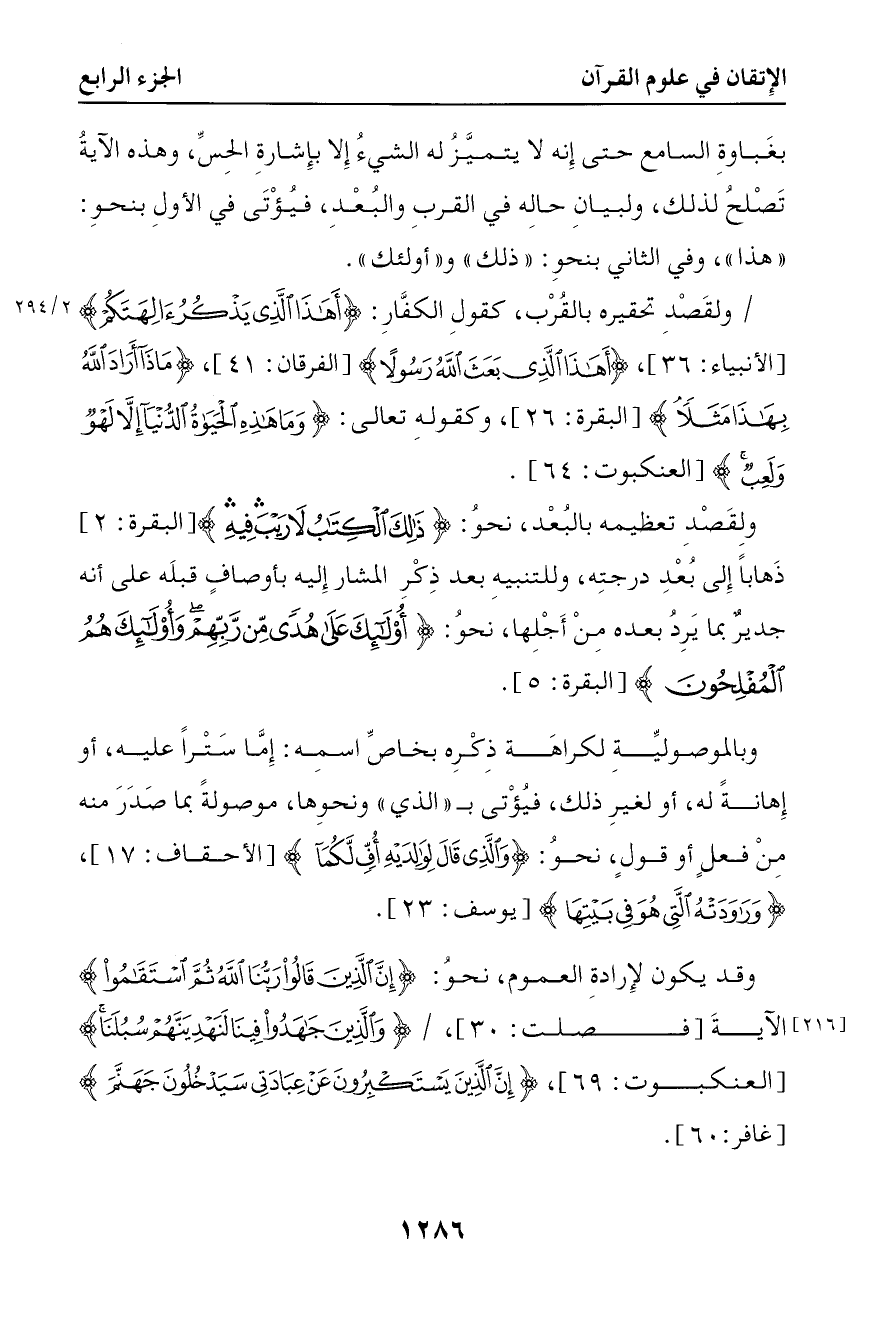 الإتقان في علوم القرآن    الجزء الرابع
بغَباوةِ السامع حتى إنه لا يتميَّزُ له الشيءُ إلا بإشارةِ الحسِّ، وهذه الآيةُ
تَصْلحُ لذلك، ولبيانِ حاله في القربِ والبُعْدِ، فيُؤْتَى في الأولِ بنحو:
«هذا»، وفي الثاني بنحو: «ذلك» و«أولئك».
/ ولقَصْدِ تحقيره بالقُرْب، كقول الكفَّار: ﴿أَهَٰذَا ٱلَّذِى يَذْكُرُ ءَالِهَتَكُمْ﴾ ٢٩٤/٢
[الأنبياء: ٣٦]، ﴿أَهَٰذَا ٱلَّذِى بَعَثَ ٱللَّهُ رَسُولًا﴾ [الفرقان: ٤١]، ﴿مَاذَآ أَرَادَ ٱللَّهُ
بِهَٰذَا مَثَلًاۘ﴾ [البقرة: ٢٦]، وكقوله تعالى: ﴿وَمَا هَٰذِهِ ٱلْحَيَوٰةُ ٱلدُّنْيَآ إِلَّا لَهْوٌ
وَلَعِبٌۚ﴾ [العنكبوت: ٦٤].
ولقَصْدِ تعظيمه بالبُعْد، نحوُ: ﴿ذَٰلِكَ ٱلْكِتَٰبُ لَا رَيْبَۛ فِيهِۛ﴾ [البقرة: ٢]
ذَهاباً إلى بُعْدِ درجتِه، وللتنبيهِ بعد ذِكْرِ المشار إليه بأوصافٍ قبلَه على أنه
جديرٌ بما يَرِدُ بعده مِنْ أَجْلِها، نحوُ: ﴿أُو۟لَٰٓئِكَ عَلَىٰ هُدًى مِّن رَّبِّهِمْۖ وَأُو۟لَٰٓئِكَ هُمُ
ٱلْمُفْلِحُونَ﴾ [البقرة: ٥].
وبالموصوليَّة لكراهَة ذِكْرِه بخاصِّ اسمِه: إمَّا سَتْراً عليه، أو
إهانةً له، أو لغيرِ ذلك، فيُؤْتى بـ «الذي» ونحوِها، موصولةً بما صَدَرَ منه
مِنْ فعلٍ أو قولٍ، نحوُ: ﴿وَٱلَّذِى قَالَ لِوَٰلِدَيْهِ أُفٍّ لَّكُمَآ﴾ [الأحقاف: ١٧]،
﴿وَرَٰوَدَتْهُ ٱلَّتِى هُوَ فِى بَيْتِهَا﴾ [يوسف: ٢٣].
وقد يكون لإرادةِ العموم، نحوُ: ﴿إِنَّ ٱلَّذِينَ قَالُوا۟ رَبُّنَا ٱللَّهُ ثُمَّ ٱسْتَقَٰمُوا۟﴾
[٢١٦] الآيةَ [فصلت: ٣٠]، / ﴿وَٱلَّذِينَ جَٰهَدُوا۟ فِينَا لَنَهْدِيَنَّهُمْ سُبُلَنَاۚ﴾
[العنكبوت: ٦٩]، ﴿إِنَّ ٱلَّذِينَ يَسْتَكْبِرُونَ عَنْ عِبَادَتِى سَيَدْخُلُونَ جَهَنَّمَ﴾
[غافر: ٦٠].
١٢٨٦